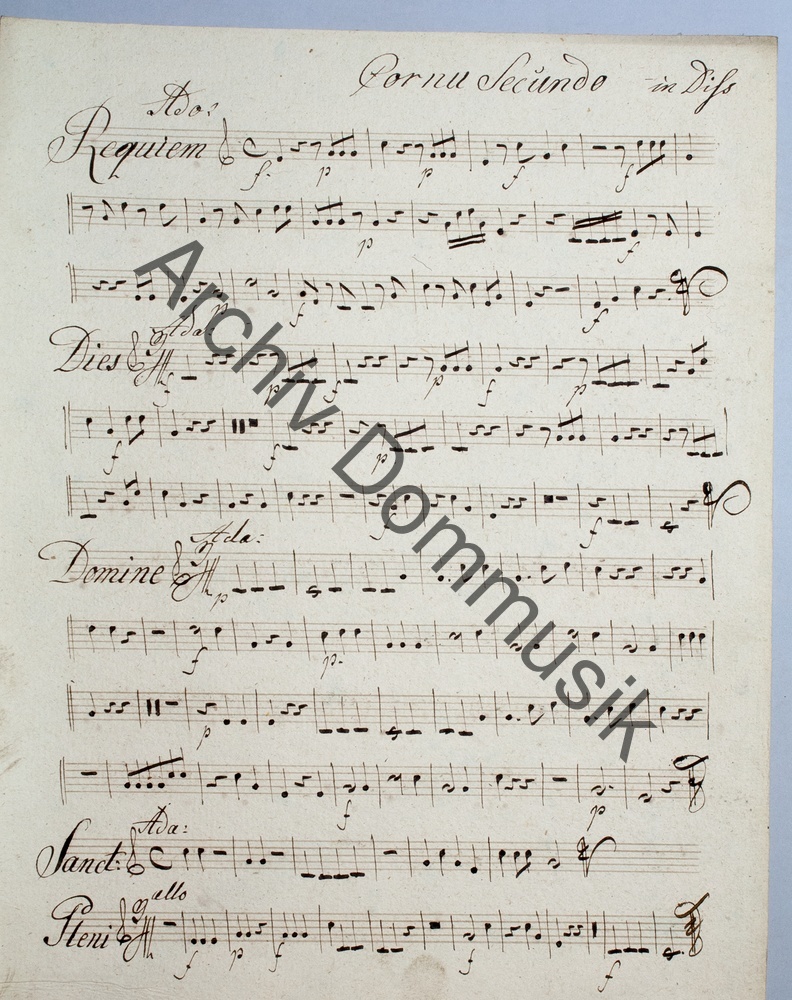 Cornu Secundo in Diss
Ado:
Requiem
f. p p f f
p f
p f f
Ada:
Dies
f p f p f p
f f p
f f
Ada:
Domine
p
f p.
p
f p
Ada:
Sanct:
allo
Pleni
f p f f f
Archiv Dommusik